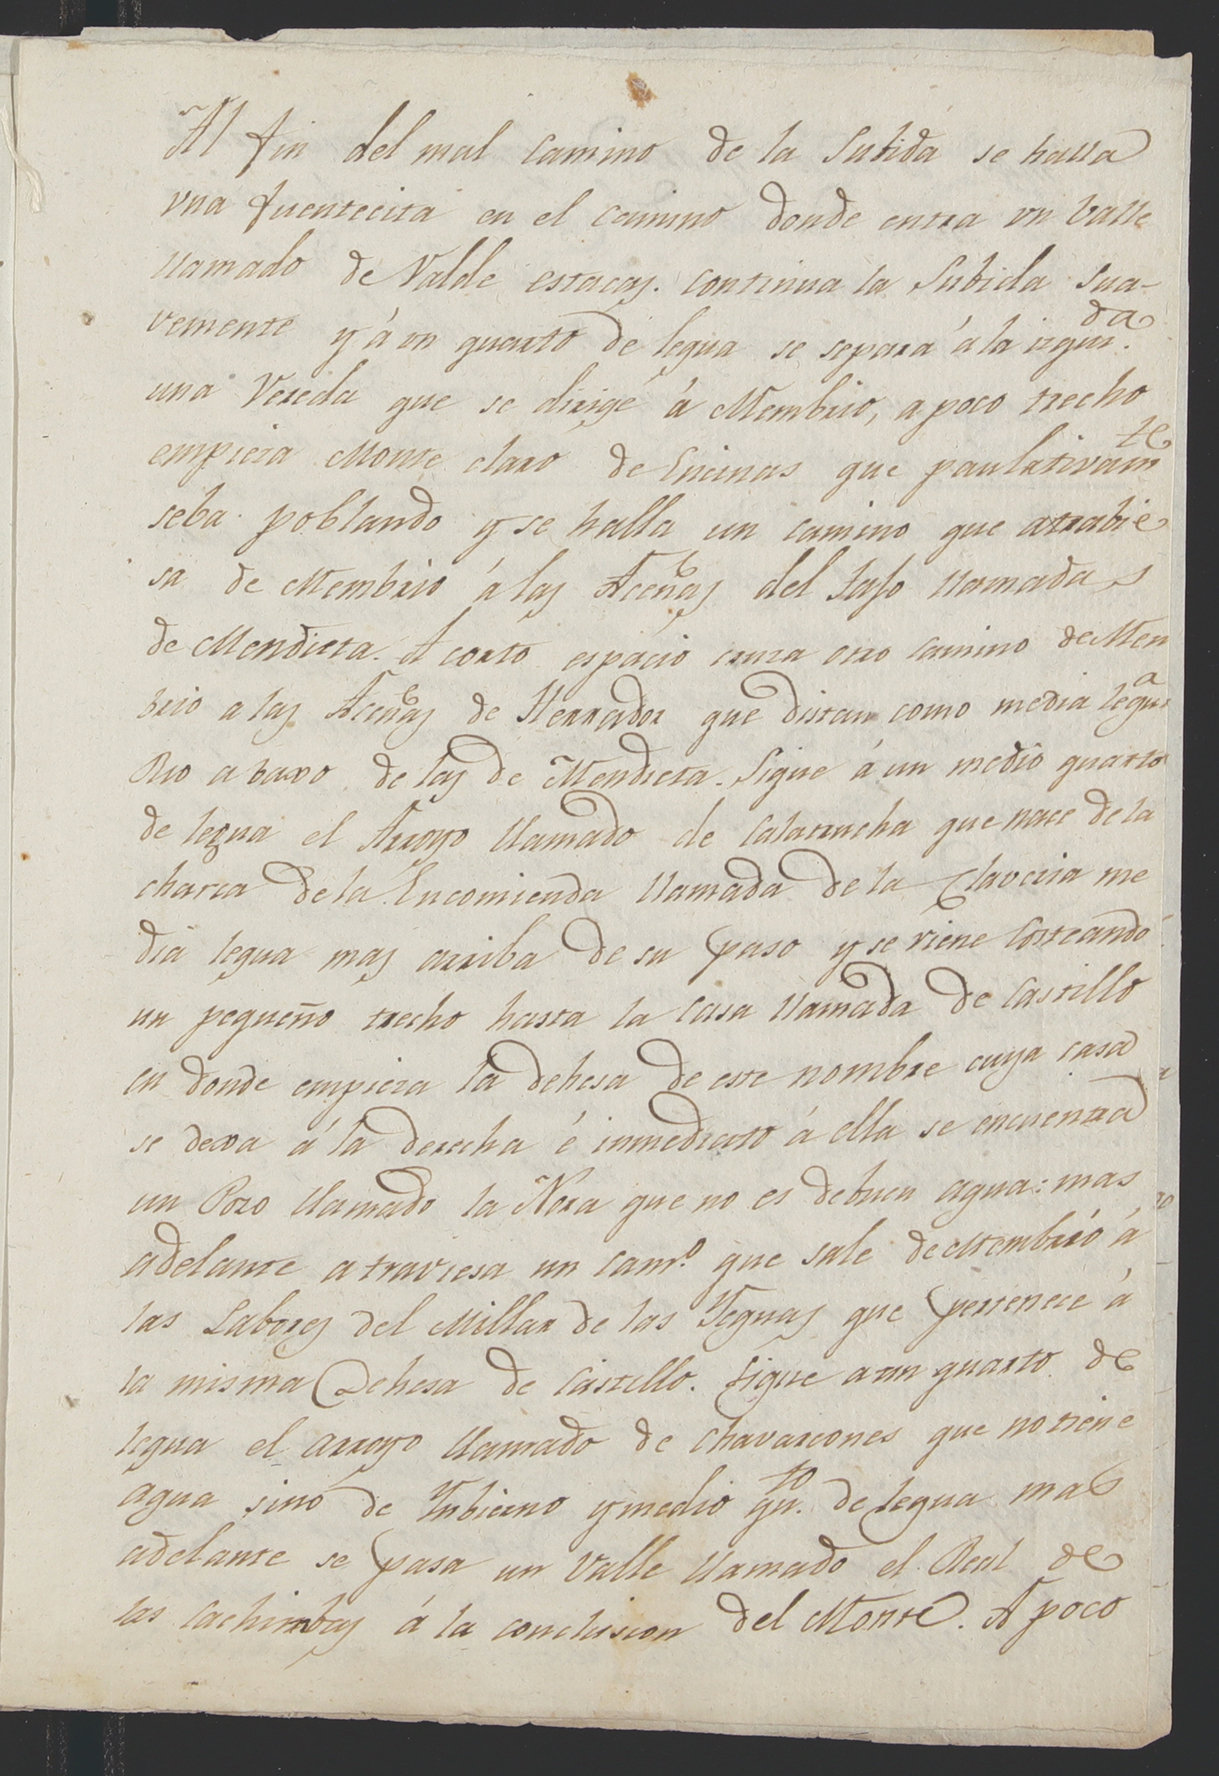 Al fin del mal camino de la Subida se halla
vna fuentecita en el camino donde entra vn valle
llamado de Valde estacas. continua la Subida Sua-
vemente y á vn quarto de legua se separa á la izqui.da
una Vereda que se dirige á Membrio, a poco trecho
empieza Monte claro de Encinas que paulativam.te
seba poblando y se halla un camino que atrabie
sa de Membrio á las Aceñas del Tajo llamadas
de Mendieta. A corto espacio cruza otro camino de Mem
brio a las Aceñas de Herrador que distan como media legua
Rio abaxo de las de Mendieta. Sigue á un medio quarto
de legua el Arroyo llamado de Calatrucha que nace de la
charca de la Encomienda llamada de la Claveria me
dia legua mas arriba de su paso y se viene costeando
un pequeño trecho hasta la casa llamada de Castillo
en donde empieza la dehesa de este nombre cuya casa
se dexa á la derecha é inmediato á ella se encuentra
un Pozo llamado la Nora que no es debuen agua: mas
adelante atraviesa un cam.o que sale de Membrió á
las Labores del Millar de las Yeguas que pertenece á
la misma Dehesa de Castillo. Sigue a un quarto de
legua el arroyo llamado de Chavarcones que no tiene
agua sinó de Ynbierno y medio qu.to de legua mas
adelante se pasa un Valle llamado el Real de
las Cachimbas á la conclusion del Monte. A poco